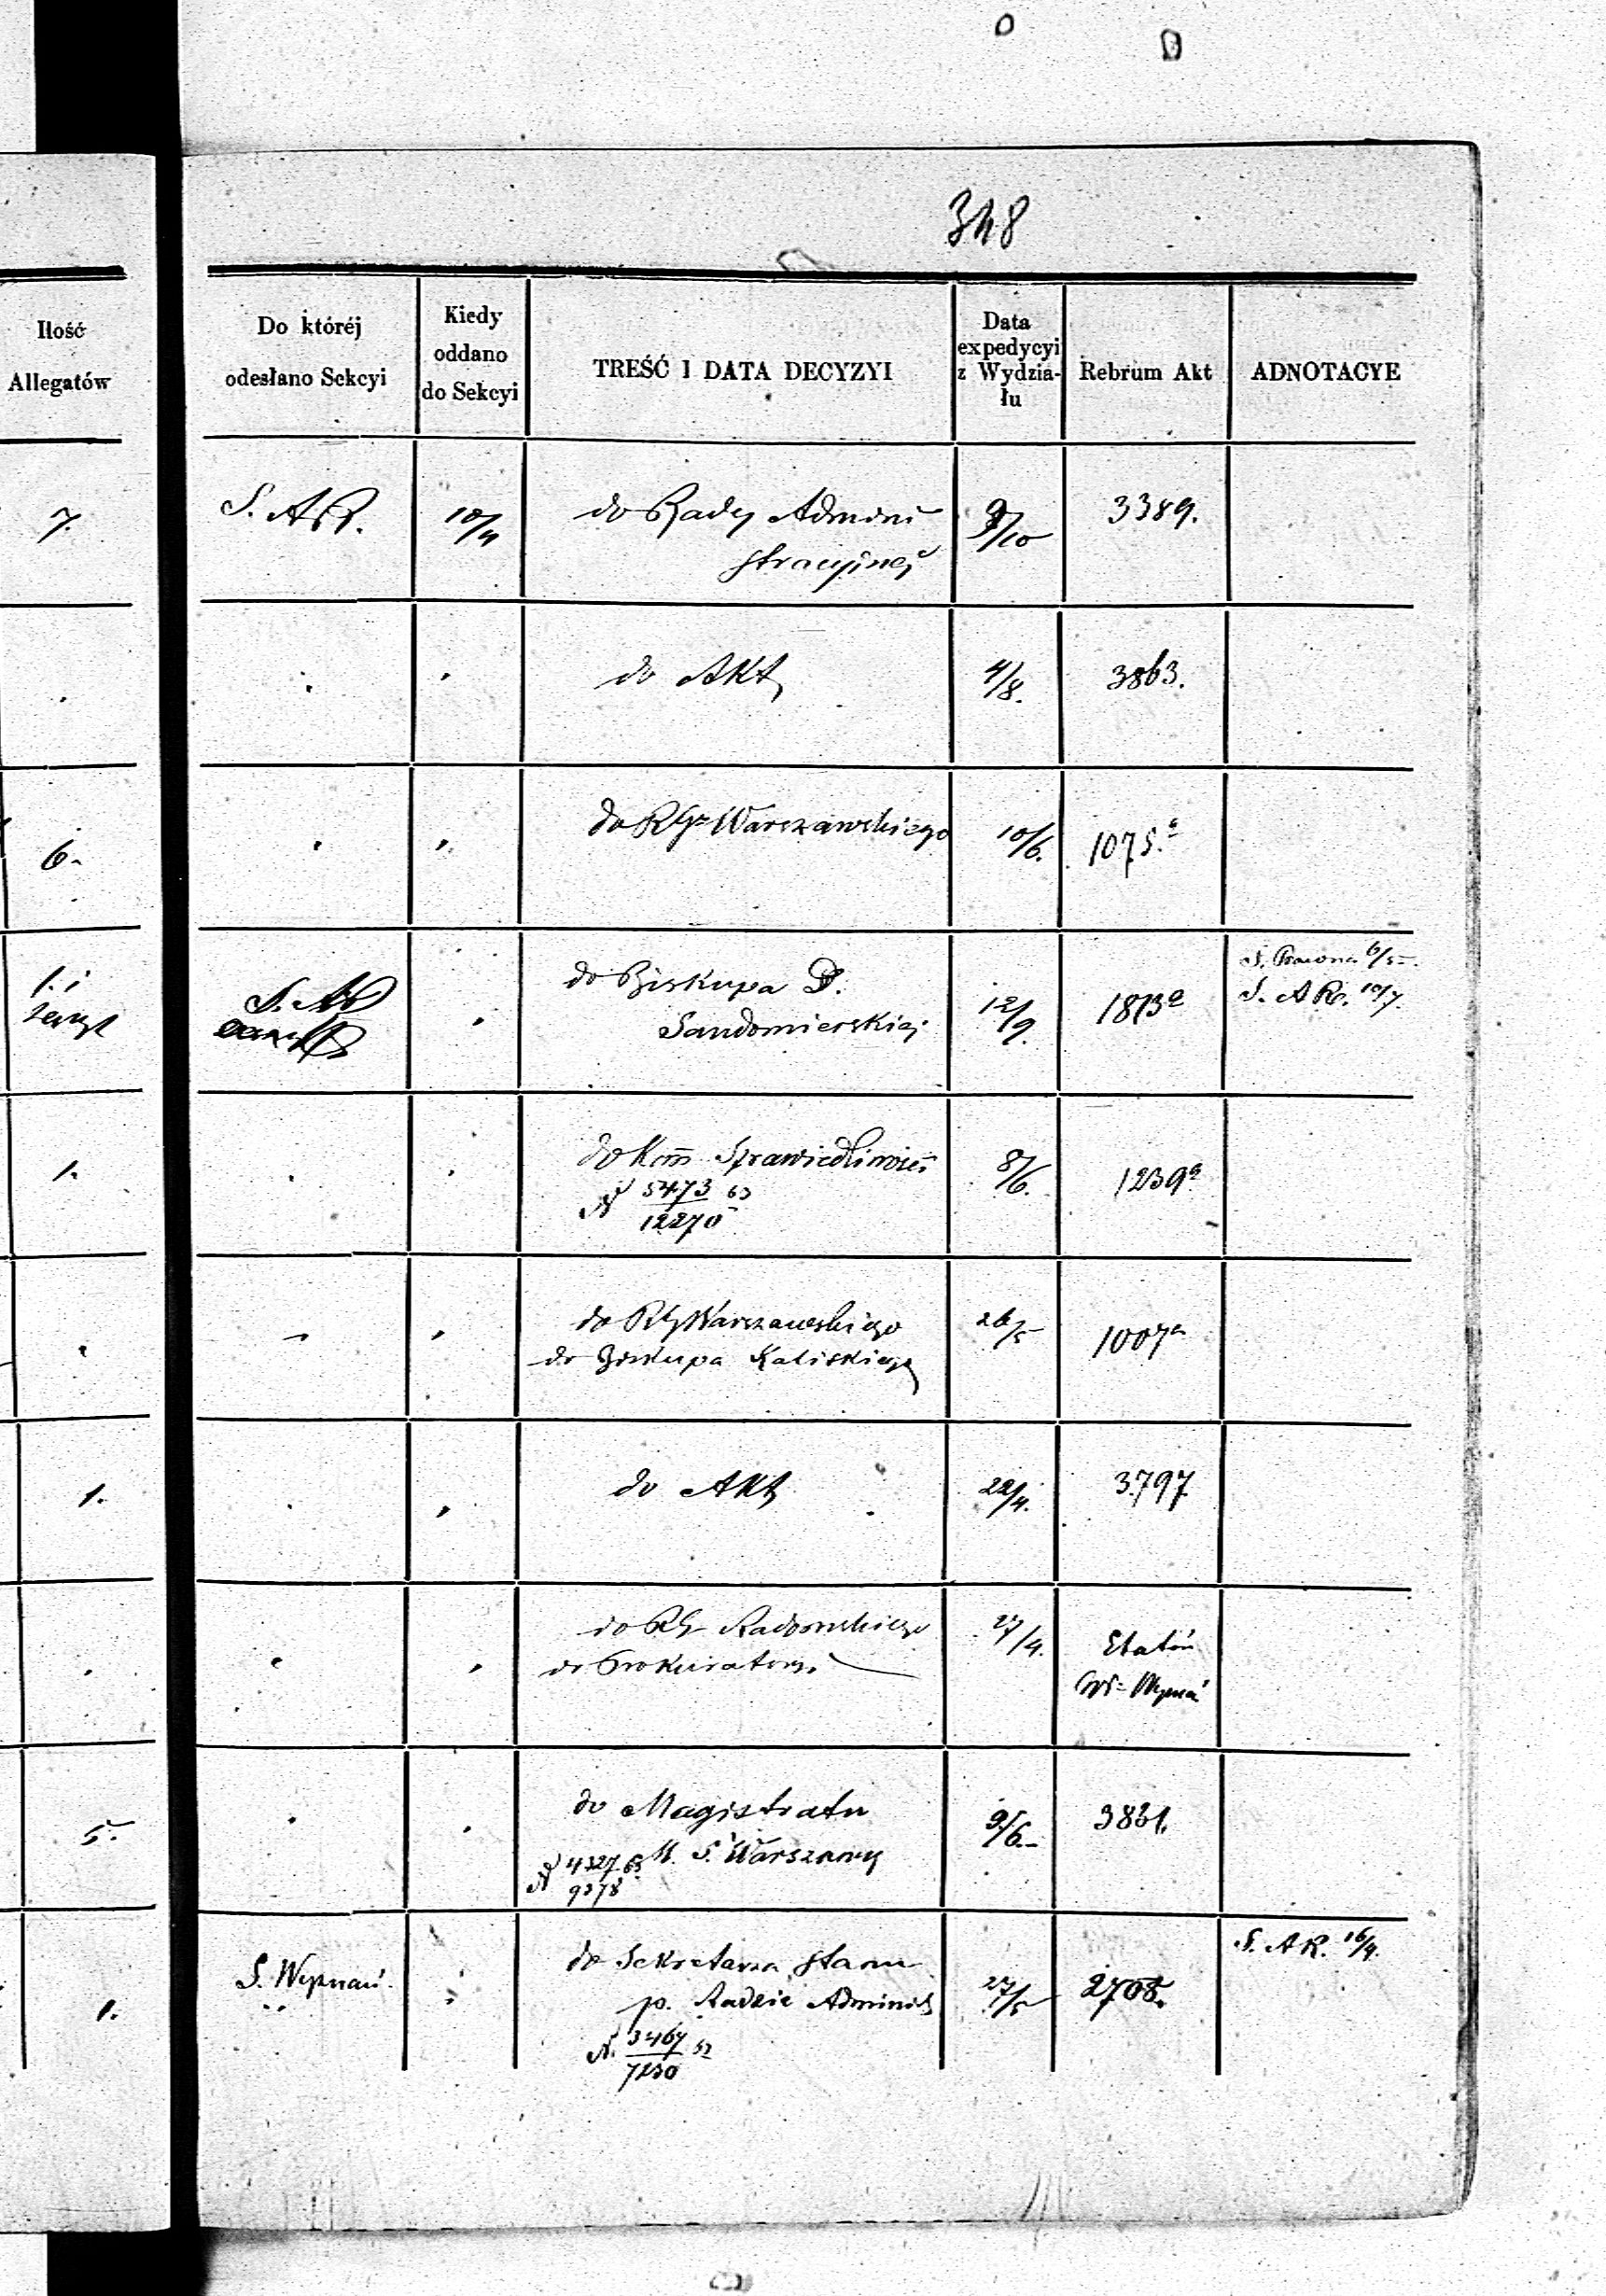 348
Ilość
Allegatów
Do któréj
odesłano Sekcyi
Kiedy
oddano
do Sekcyi
TREŚĆ I DATA DECYZYI
Data
expedycyi
z Wydzia-
łu
Rebrum Akt
ADNOTACYE
7.
S. AR.
10/4
do Rady Admini
stracyjnej
9/10
3389.
do Akt
4/8.
3863.
6.
do RGo Warszawskiego
10/6.
1075.a
1. i
S. AR
do Biskupa D.
Sandomierskiej
12/9.
1813a
S. Prawna 6/5.
S. A R. 10/7.
1.
do Kom Sprawiedliwości
N 5473 63
12270
8/6.
1239a
do RG Warszawskiego
do Biskupa Kaliskiego
26/5
1007a
1.
do Akt
22/4.
3797
do RG Radomskiego
do Prokuratoryi
27/4.
Etatów
5.
do Magistratu
M. S. Warszawy
N 4327 63
9378
9/6.
3831.
1.
S. Wyznań.
do Sekretarza Stanu
p. Radzie Adminis
N. 3467 52
7230
27/5
2708.
S. A R. 16/4.